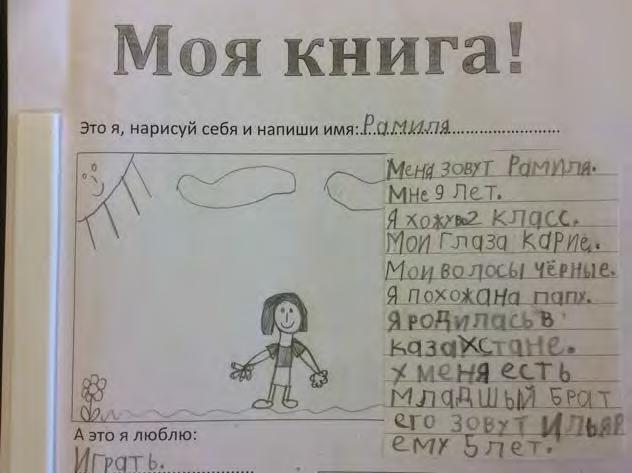 Моя книга!
Это я, нарисуй себя и напиши имя: Рамиля
Меня зовут Рамиля.
Мне 9 лет.
Я хожу во 2 класс.
Мои глаза карие.
Мои волосы чёрные.
Я похожа на папу.
Я родилась в
казахстане.
у меня есть
младшый брат
его зовут Ильяр
ему 5 лет.
А это я люблю:
Играть.